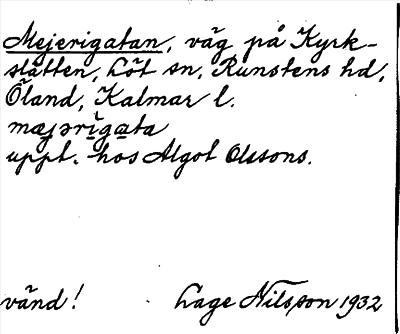 Mejerigatan, väg på Kyrk-
slätten, Löt sn, Runstens hd,
Öland, Kalmar l.
mæjərigata
uppt. hos Algot Olssons.
vänd! Lage Nilsson 1932